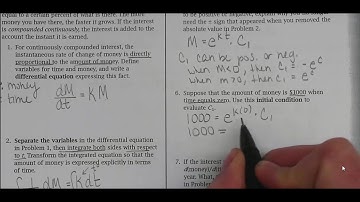 equal to a certain percent of what is there. The more
money you have there, the faster it grows. If the interest
is compounded continuously, the interest is added to
the account the instant it is earned.
1. For continuously compounded interest, the
instantaneous rate of change of money is directly
proportional to the amount of money. Define
variables for time and money, and write a
differential equation expressing this fact.
money
time
dM/dt = KM
2. Separate the variables in the differential equation
in Problem 1, then integrate both sides with respect
to t. Transform the integrated equation so that the
amount of money is expressed explicitly in terms
of time.
to be positive or negative, explain why you do
need the ± sign that appeared when you removed the
absolute value in Problem 2.
M = e^kt · C₁
C₁ can be pos. or neg.
6. Suppose that the amount of money is $1000 when
time equals zero. Use this initial condition to
evaluate C₁.
1000 = e^k(0) · C₁
1000 =
7. If the interest